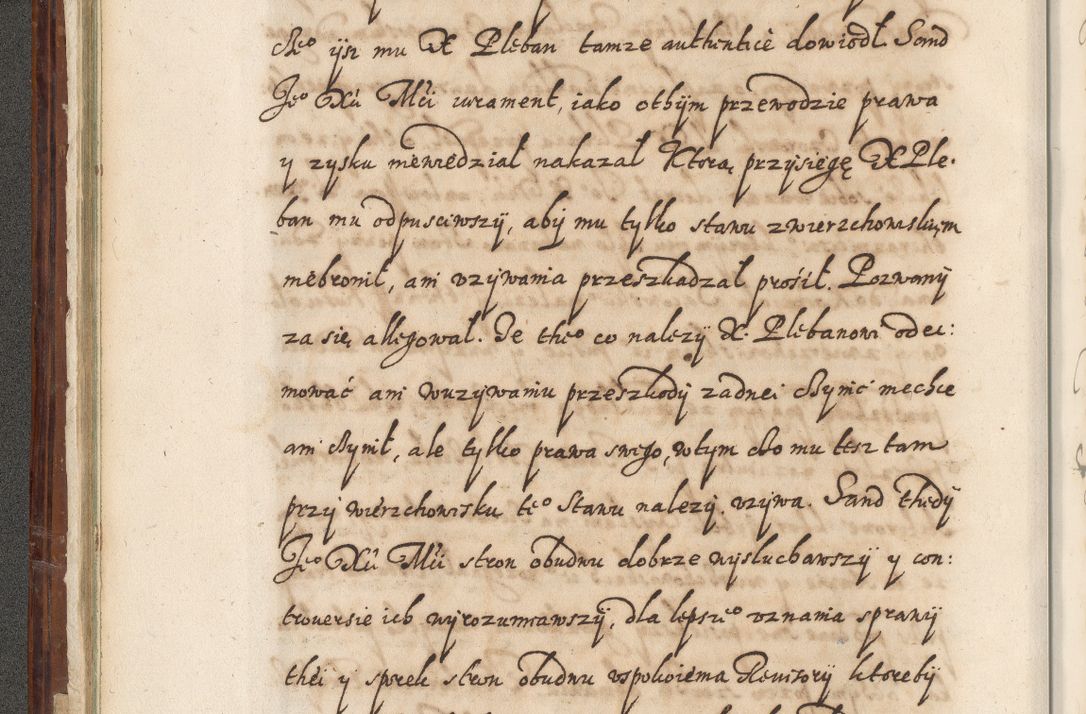 cze⁰ ijsz mu X Pleban tamze authentice dowiodł. Sond
Je⁰ Xů Mći iurament, iako otbijm przewodzie prawa
y zysku niewiedział nakazał Ktorą przysięgę X Ple.
ban mu odpusciwszÿ, abÿ mu tylko stawu zwierzchowiskiem
niebronił, ani vzÿwania przeszkadzał prosił. Pozwanÿ
za się allegował. Ze the⁰ co nalezÿ X. Plebanowi odei:
mować ani wuzÿwaniu przeszkodÿ zadnei czÿnić niechce
ani czÿnił, ale tylko prawa swego, wtym cżo mu tesz tam
przÿ wierzchowisku te⁰ Stawu nalezÿ. vzÿwa. Sand thedÿ
Je⁰ Xů Mći stron obudwu dobrze wysluchawszÿ y con:
trouersie ich wÿrozumiawszÿ, dla lepsze⁰ vznania sprawÿ
thei y sporek stron obudwu vspokoienia Reuisorÿ ktorebÿ